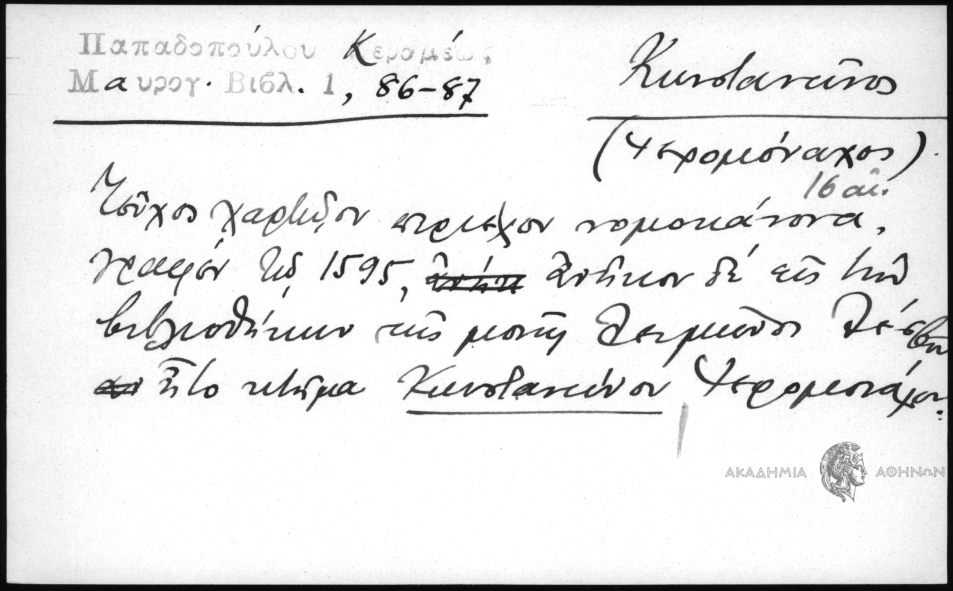 Παπαδοπούλου Κεραμέως,
Μαυρογ. Βιβλ. 1, 86-87
Κωνσταντῖνος
(Ἱερομόναχος).
16 αἰ.
Τεῦχος χαρτῷον περιέχον νομοκάνονα,
γραφὲν τῷ 1595, ἀνῆκον δὲ εἰς τὴν
βιβλιοθήκην τῆς μονῆς Λειμῶνος Λέσβου
ἦτο κτῆμα Κωνσταντίνου Ἱερομονάχου.
ΑΚΑΔΗΜΙΑ ΑΘΗΝΩΝ